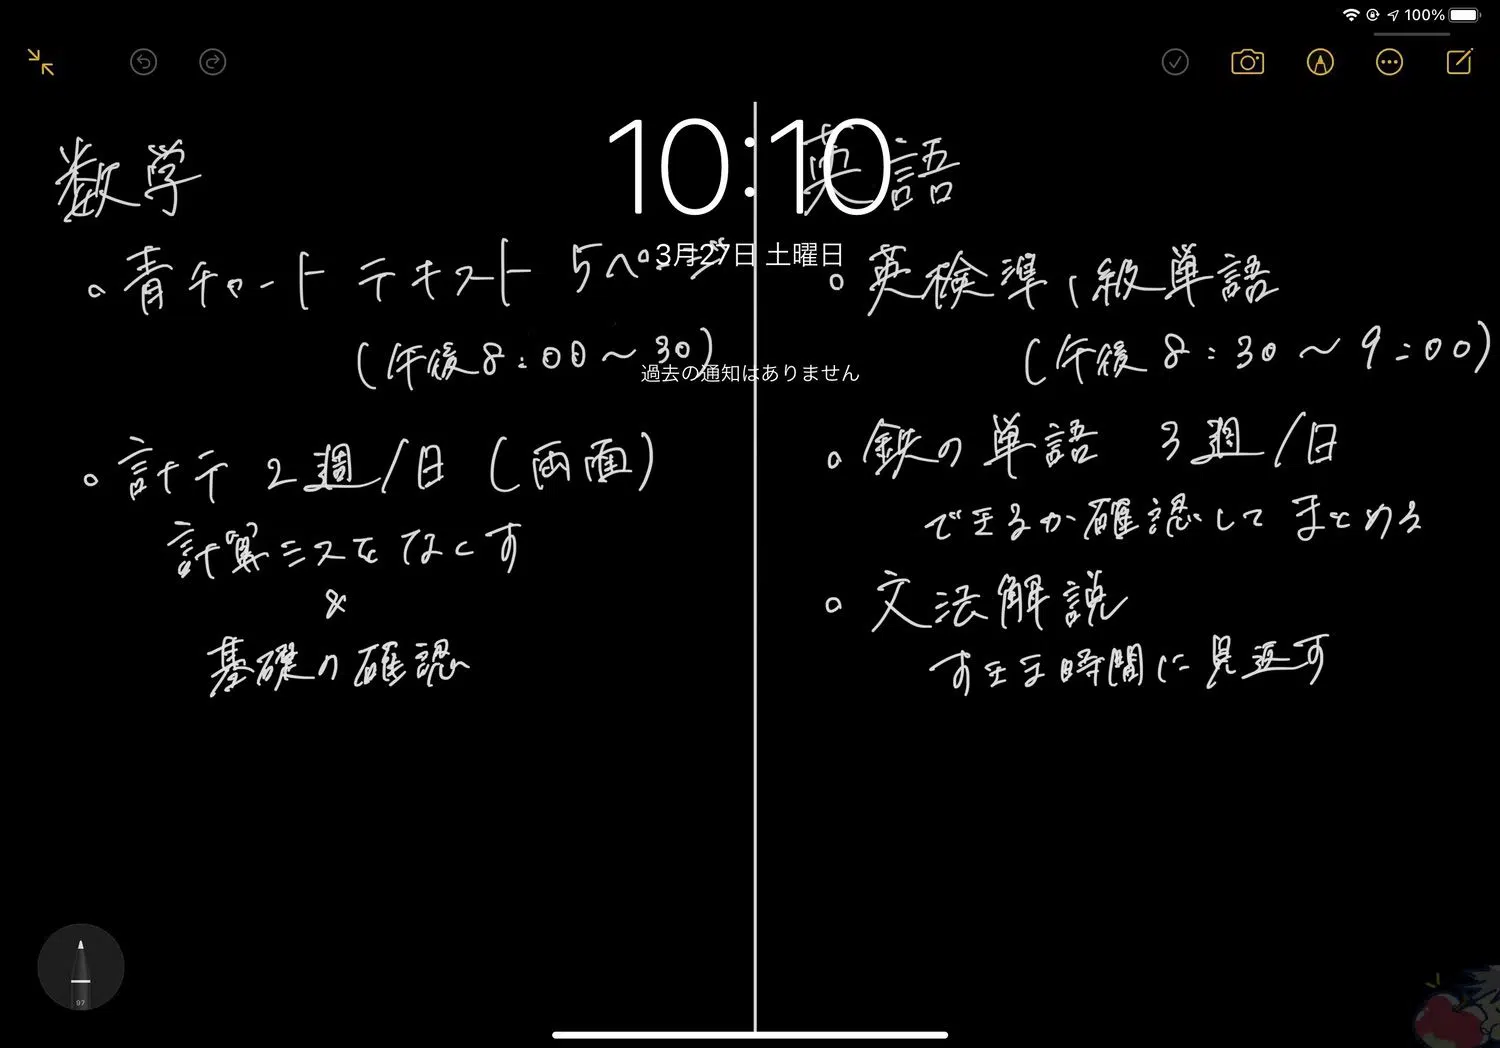 100%
10:10
3月27日 土曜日
過去の通知はありません
数学
。青チャート テキスト 5ページ
(午後8:00～30)
。計テ 2週/日 (両面)
計算ミスをなくす
&
基礎の確認
英語
。英検準1級単語
(午後 8:30～9:00)
。鉄の単語 3週/日
できるか確認して まとめる
。文法解説
すきま時間に見返す
97